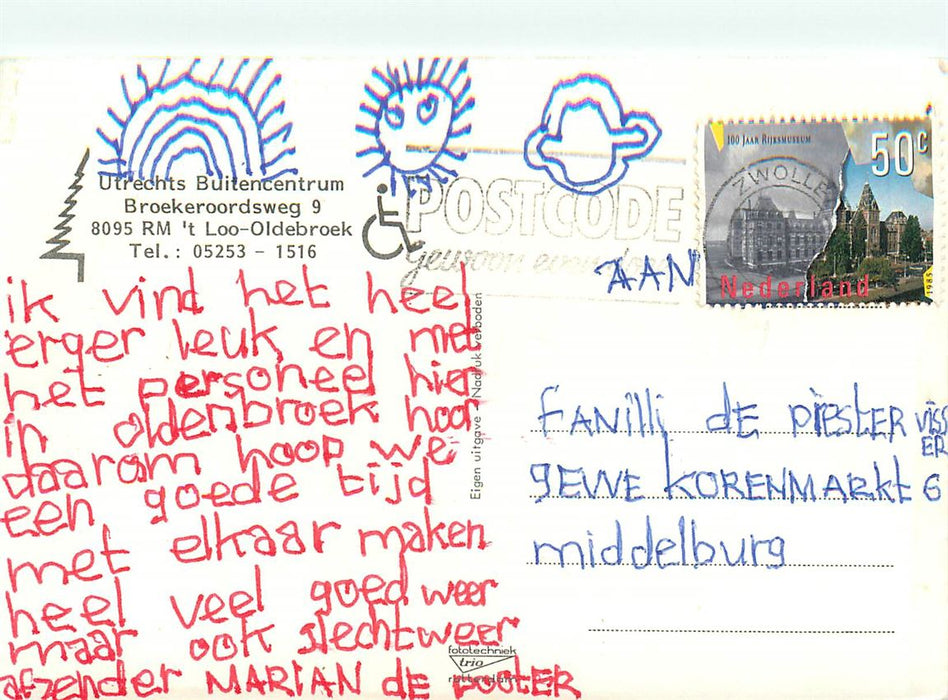 Utrechts Buitencentrum
Broekeroordsweg 9
8095 RM 't Loo-Oldebroek
Tel.: 05253 - 1516
POSTCODE
gewoon even
ZWOLLE
100 JAAR RIJKSMUSEUM
50c
Nederland
1985
AAN
ik vind het heel
erger leuk en met
het personeel hier
in oldenbroek hoor
daarom hoop we
een goede tijd
met elkaar maken
heel veel goed weer
maar ook slechtweer
afzender MARIAN DE
Eigen uitgave - Nadruk verboden
fANilli DE PiESTER VISSER
gEVVE KORENMARkt 6
middelburg
fototechniek
trio
rotterdam